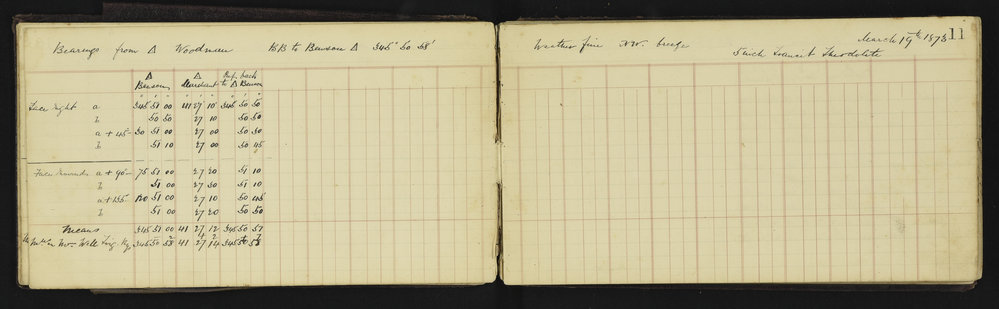 Bearings from Δ Woodman BB to Benson Δ 345° 50' 58"
Δ Δ Ref. back
Benson Mardant to Δ Benson
Face right a 345 51 00 41 27 10 345 50 50
b 50 50 27 10 50 50
a + 45 30 51 00 27 00 50 50
b 51 10 27 00 50 45
Face a + 90 75 51 00 27 20 51 10
b 51 00 27 20 51 10
a + 135 120 51 00 27 10 50 45
b 51 00 27 20 50 50
Means 345 51 00 41 27 12 345 50 57
345 50 58 41 27 14 345 50 58
Weather fine NW. breeze March 19th 1878 11
5 inch Transit Theodolite